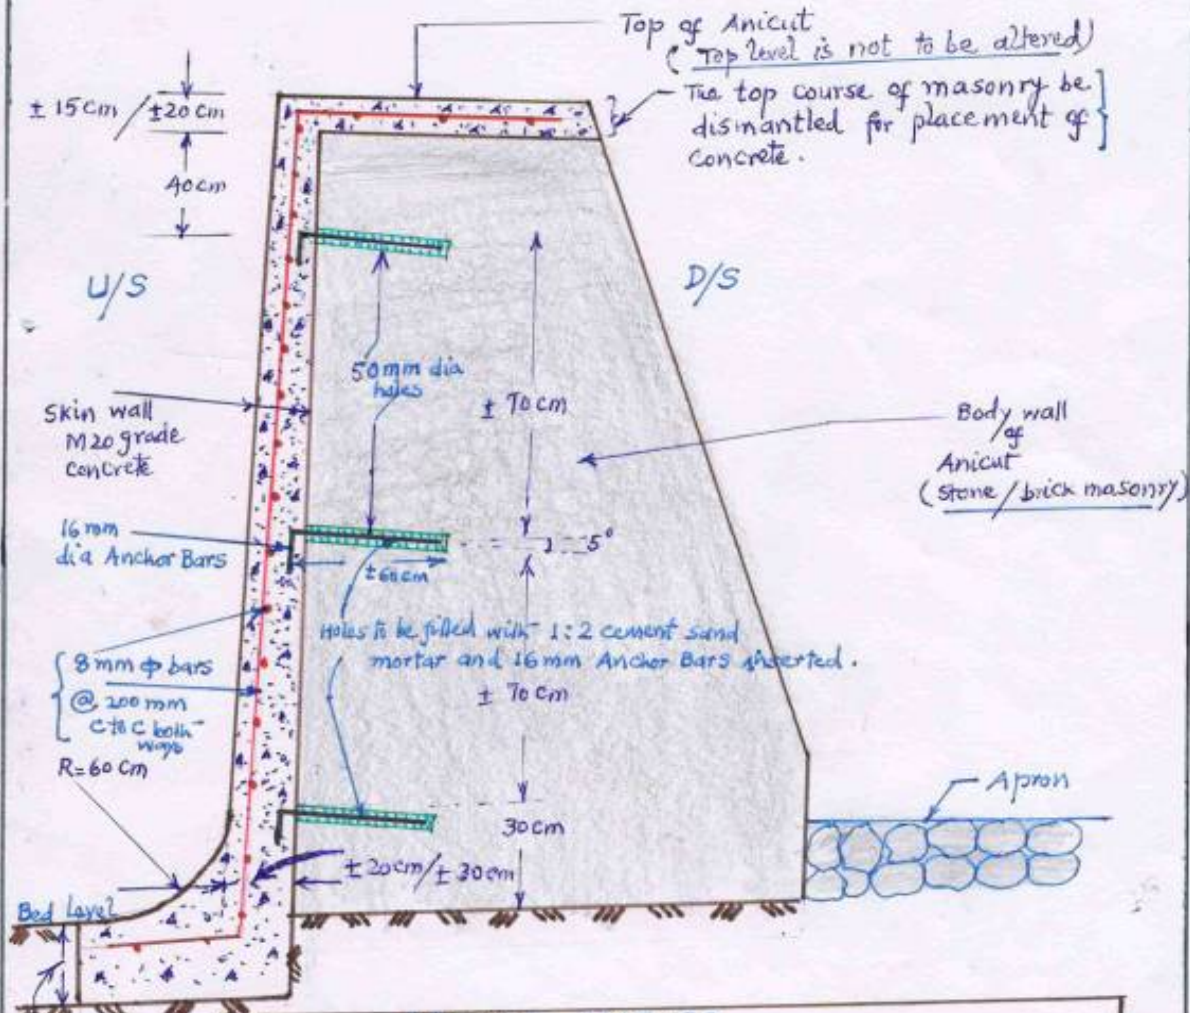 Top of Anicut
(Top level is not to be altered)
± 15 cm / ±20 cm
The top course of masonry be
dismantled for placement of
concrete.
40 cm
U/S
D/S
50 mm dia
holes
± 70 cm
Skin wall
M20 grade
concrete
Body wall
of
Anicut
(stone / brick masonry)
16 mm
dia Anchor Bars
5°
±60 cm
Holes to be filled with 1:2 cement sand
mortar and 16 mm Anchor Bars inserted.
8 mm ϕ bars
@ 200 mm
C to C both
ways
± 70 cm
R=60 cm
Apron
30 cm
± 20 cm / ± 30 cm
Bed Level